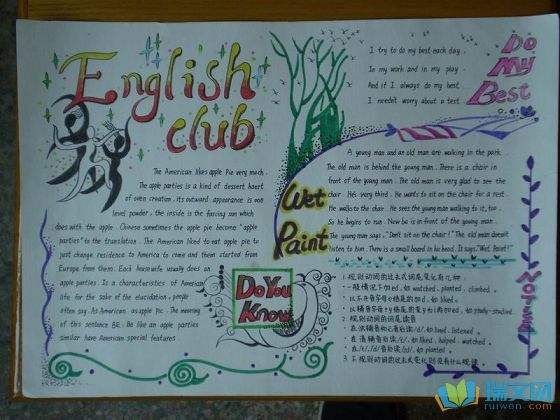 English
club
The American likes apple Pie very much.
The apple parties is a kind of dessert haert
of oven creation. its outward appearance is one
level powder, the inside is the farcing san which
does with the apple. Chinese sometimes the apple pie become "apple
parties" to the translation. The American Need to eat apple pie to
just change residence to America to come and them started from
Europe from them. Each housewife usually does an
apple parties. Is a characteristics of American
life for the sake of the elucidation, people
often say As American as apple Pie. The meaning
of this sentence BE. Be like an apple parties
similar have American special features.
Do You
Know
I try to do my best each day.
In my work and in my play.
And if I always do my best.
I needn't worry about a test.
Do
My
Best
Wet
Paint
A young man and an old man are walking in the park.
The old man is behind the young man. There is a chair in
front of the young man. The old man is very glad to see the
chair. He's very tired. He wants to sit on the chair for a rest.
He walks to the chair. He sees the young man walking to it, too.
So he begins to run. Now he is in front of the young man.
The young man says, "Don't sit on the chair!" The old man doesn't
listen to him. There is a small board in he head. It says, "Wet Paint!"
1. 规则动词的过去式词尾变化有几种
一般情况下加ed, 如 watched, planted, climbed
以不发音字母e结尾的加d, 如 liked
以辅音字母+y结尾的变y为i加ed, 如 study-studied
2. 规则动词的词尾读音
在浊辅音和元音后读/d/, 如 lived, listened
在清辅音后读/t/, 如 liked, helped, watched
在/t/,/d/音后读/id/, 如 planted
3. 不规则动词的过去式变化则没有什么规律
瑞文网
ruiwen.com